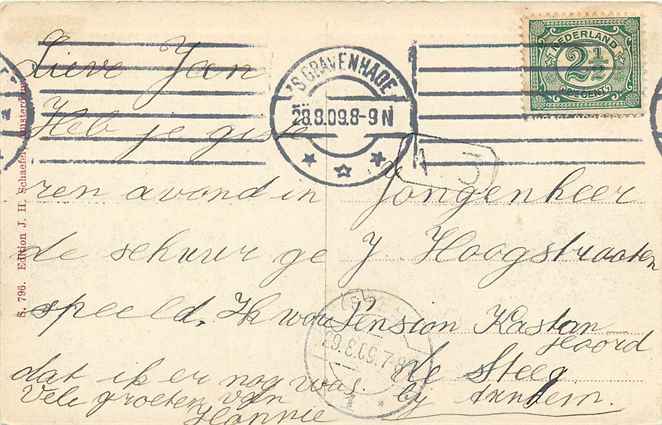 Lieve Jan
Heb je giste
ren avond in
de schuur ge
speeld. Ik wou
dat ik er nog was.
Vele groeten van
Hannie
Jongenheer
J. Hoogstraaten
Pension Kastan
Hoord
De Steeg
by Arnhem.
NEDERLAND
2½
CENT
'S GRAVENHAGE
28.8.09.8-9N
29.8.09.7-8
1
S. 796. Edition J. H. Schaefer, Amsterdam